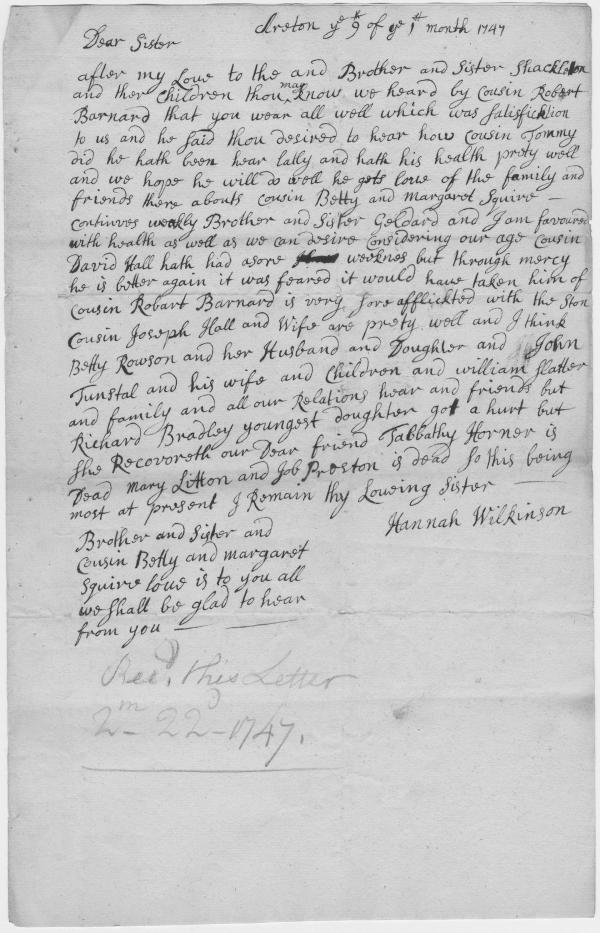 Areton ye 9th of ye 1st month 1747
Dear Sister
after my Love to the and Brother and Sister Shackleton
and ther Children thou may know we heard by Cousin Robert
Barnard that you wear all well which was Satisficktion
to us and he said thou desired to hear how Cousin Tommy
did he hath been hear latly and hath his health prety well
and we hope he will do well he gets love of the family and
friends there abouts Cousin Betty and margaret Squire —
Continves weakly Brother and Sister Geldard and I am favoured
with health as well as we can desire Considering our age Cousin
David Hall hath had asore weeknes but through mercy
he is better again it was feared it would have taken him of
Cousin Robart Barnard is very sore afflickted with the Ston
Cousin Joseph Hall and Wife are prety well and I think
Betty Rowson and her Husband and Doughter and John
Tunstal and his wife and Children and william Slatter
and family and all our Relations hear and friends but
Richard Bradley youngest doughter got a hurt but
She Recovoreth our Dear friend Tabbathy Horner is
Dead mary Litton and Job Preston is dead So this being
most at present I Remain thy Loveing Sister
Hannah Wilkinson
Brother and Sister and
Cousin Betty and margaret
Squire love is to you all
we shall be glad to hear
from you —
Rec'd this Letter
2m 22d 1747.